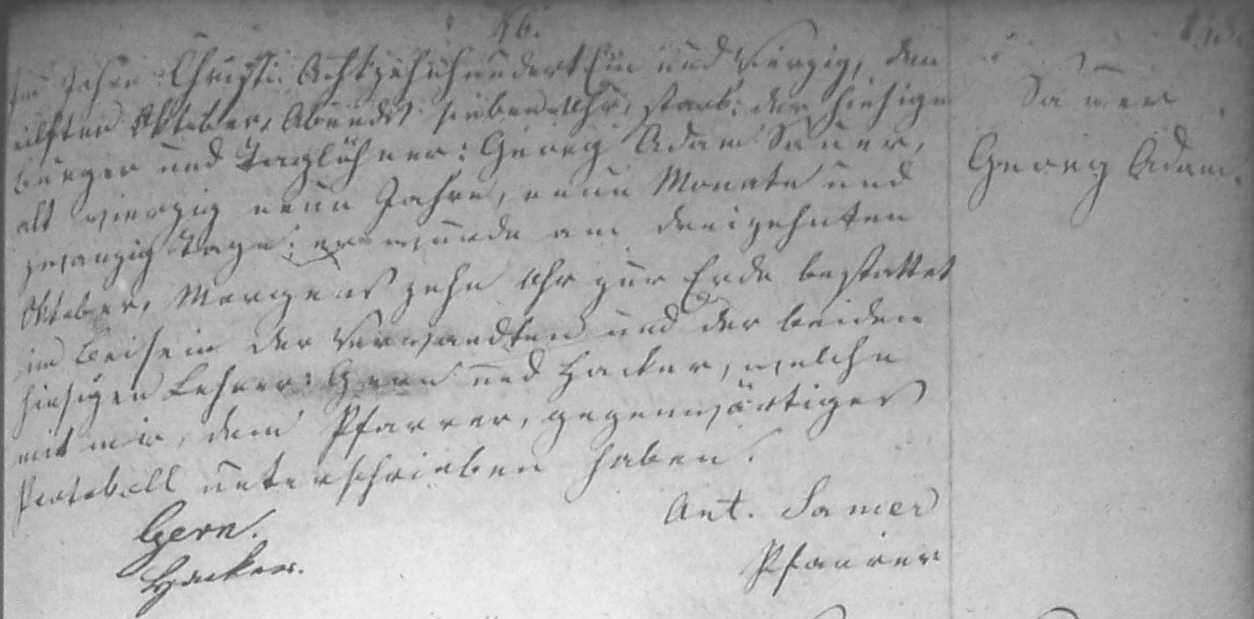 46.
Im Jahre Christi Achtzehnhundert Ein und Vierzig, den
eilften Oktober, Abends sieben Uhr, starb: der hiesige
Bürger und Taglöhner: Georg Adam Sauer,
alt vierzig neun Jahre, neun Monate und
zwanzig Tage; er wurde am dreizehnten
Oktober, Morgens zehn Uhr zur Erde bestattet
im Beisein der Verwandten und der beiden
hiesigen Lehrer: Gern und Hacker, welche
mit mir, dem Pfarrer, gegenwärtiges
Protokoll unterschrieben haben.
Gern.
Hacker.
Ant. Samer
Pfarrer
Sauer
Georg Adam.